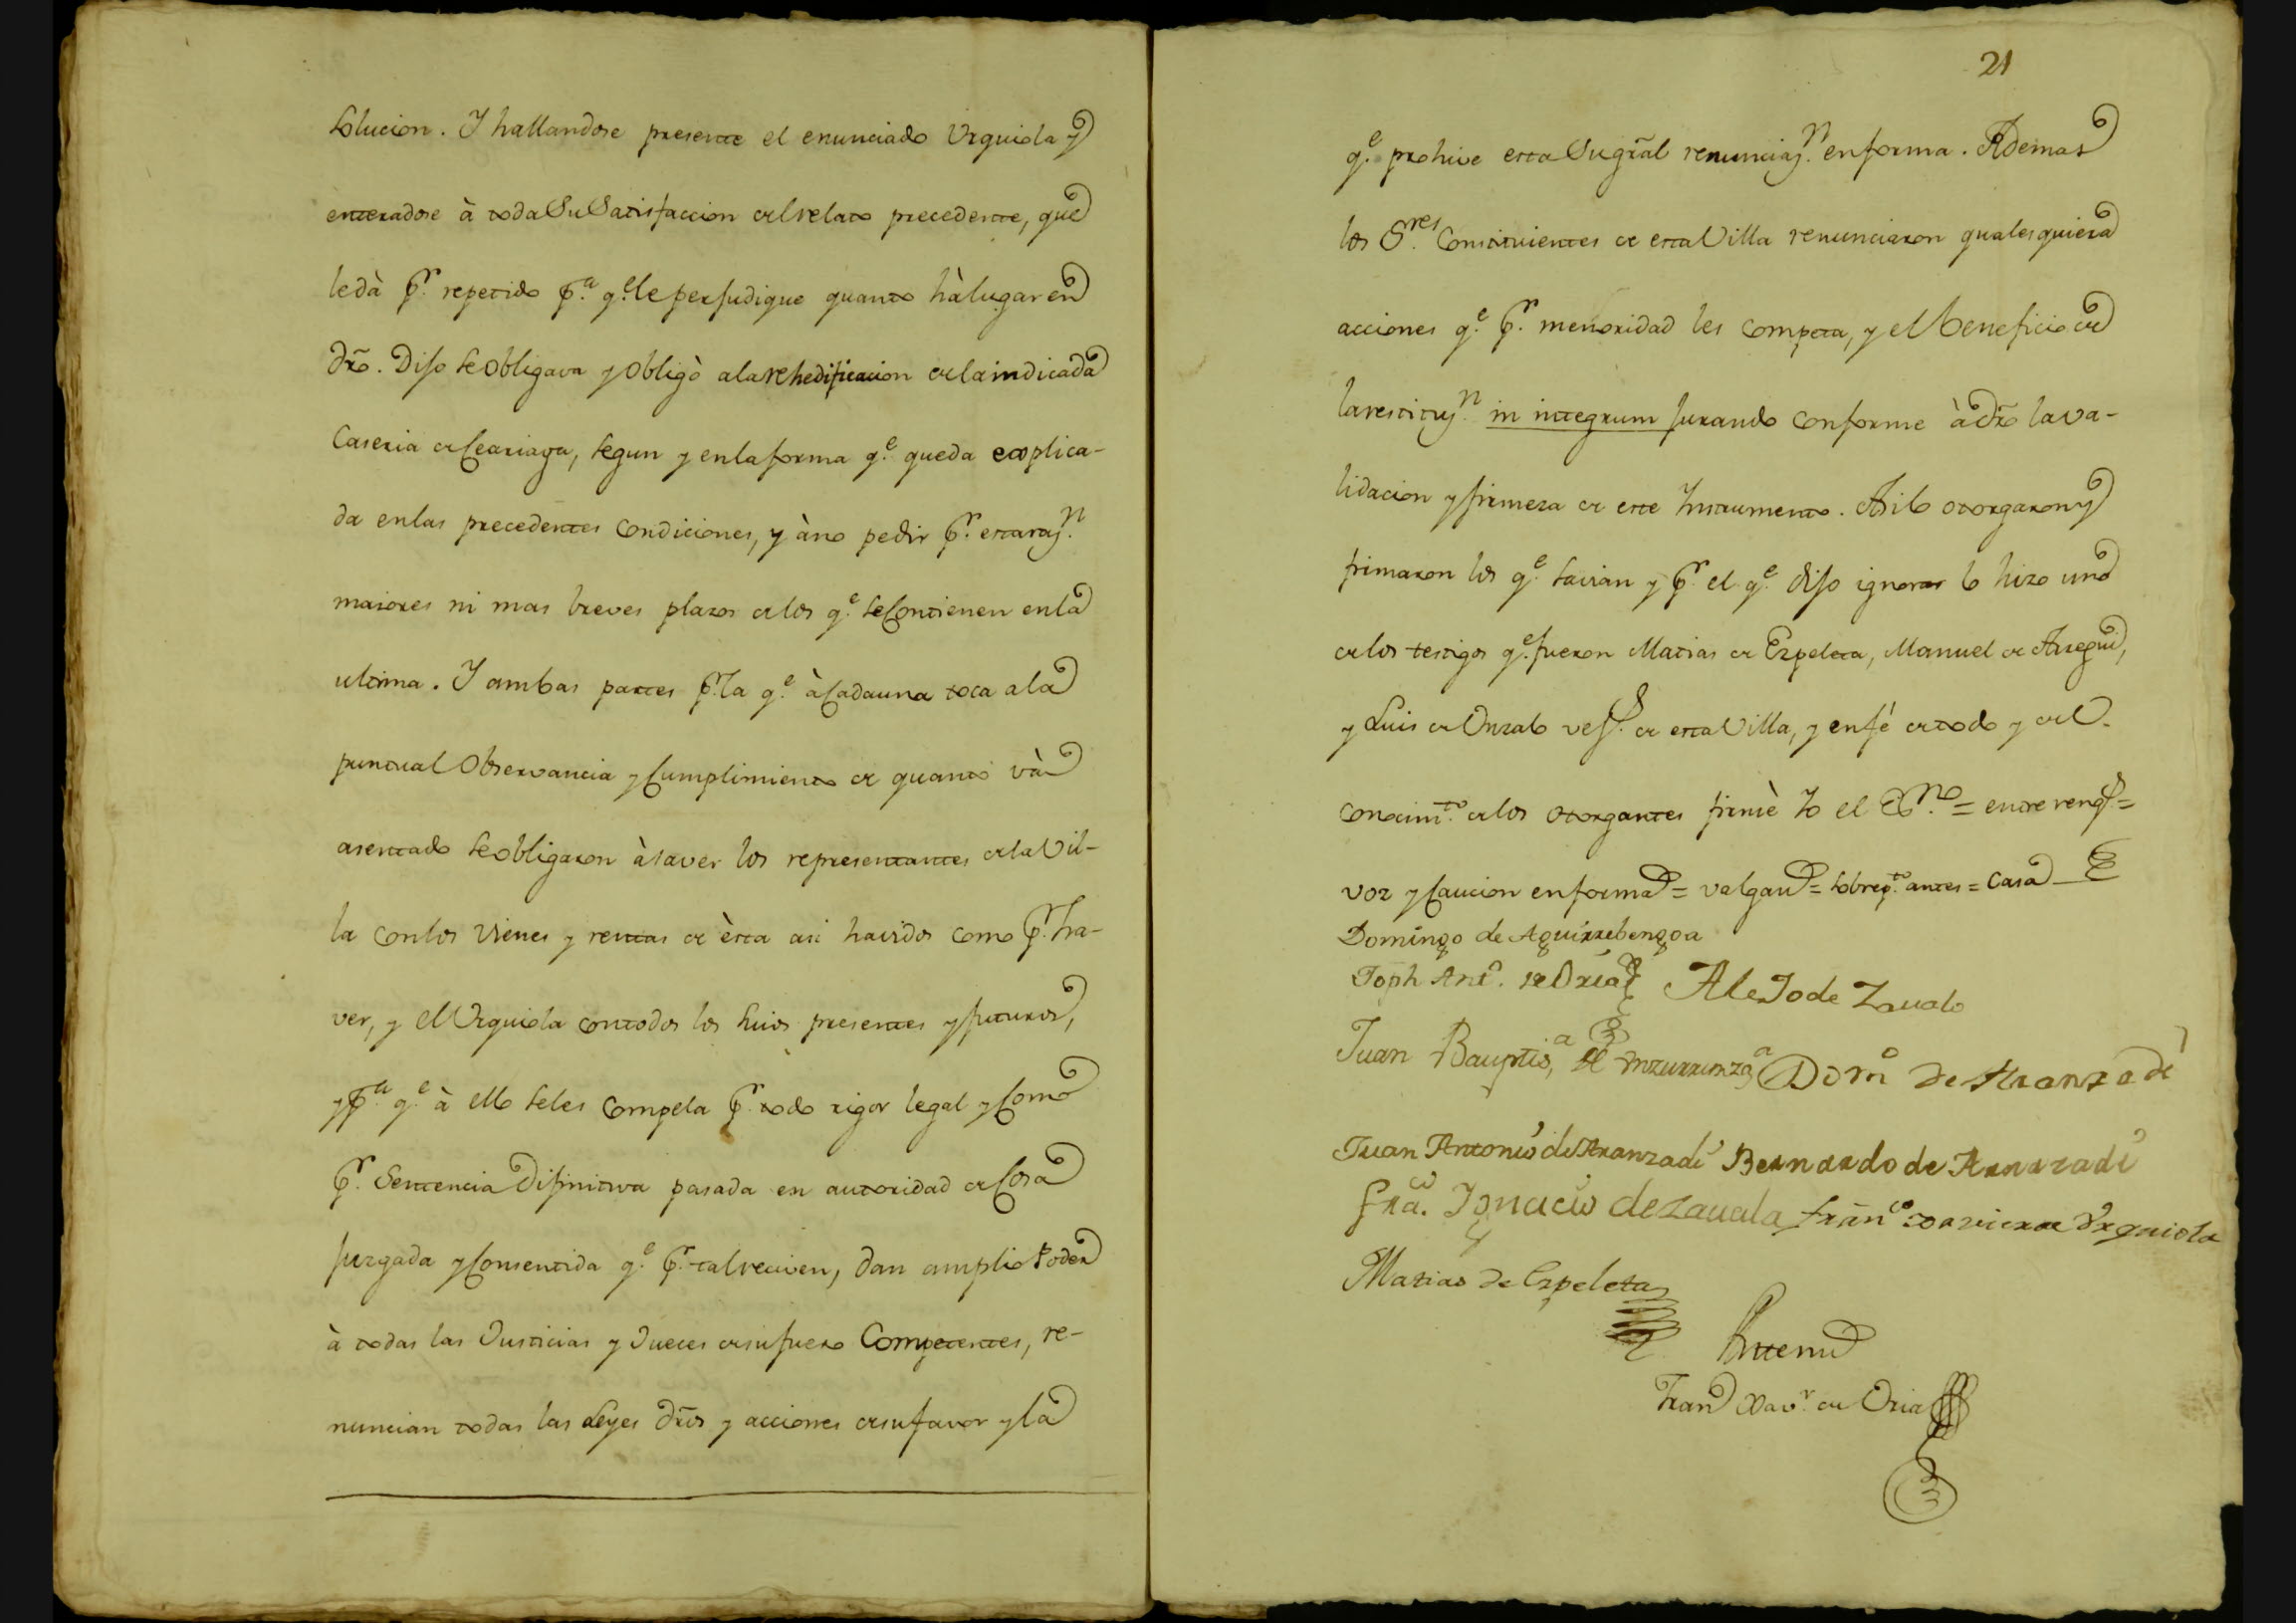 solucion. Y hallandose presente el enunciado Urquiola y
enteradose à toda Su Satisfaccion del relato precedente, que
le dà pr. repetido pa. qe. le perjudique quanto hà lugar en
dro. Dijo se obligava y obligò a la rehedificacion de la indicada
Caseria de, segun y en la forma qe. queda explica-
da en las precedentes Condiciones, y à no pedir pr. esta razn.
maiores ni mas breves plazos de los qe. se Contienen en la
ultima. Y ambas partes pr. la qe. à Cada una toca a la
puntual Observancia y Cumplimiento de quanto và
asentado se obligaron à saver los representantes de la Vil-
la con los Vienes y rentas de èsta asi havidos como pr. ha-
ver, y el Urquiola con todos los suios presentes y futuros,
y pa. qe. à ello se les Compela pr. todo rigor legal y Como
pr. Sentencia Difinitiva pasada en autoridad de Cosa
juzgada y Consentida qe. pr. tal reciven, dan amplio Poder
à todas las Justicias y Jueces de su fuero Competentes, re-
nuncian todas las Leyes dros y acciones de su favor y la
21
qe. prohive esta Su gral renunciazn. en forma. Ademas
los Sres. Constituientes de esta Villa renunciaron qualesquiera
acciones qe. pr. menoridad les Competa, y el beneficio de
la restituzn. in integrum jurando Conforme à dro la va-
lidacion y firmeza de este Instrumento. Asi lo otorgaron y
firmaron los qe. savian y pr. el qe. dijo ignorar lo hizo uno
de los testigos qe. fueron Matias de Ezpeleta, Manuel de Aregui,
y Luis de Unzalo vess. de esta Villa, y en fé de todo y del
Conocimto. de los otorgantes firmè Yo el Esno. = entre rengs. =
voz y Caucion en forma = valgan = sobrepto. antes = Casa
Domingo de Aguirrebengoa
Joph Anto. de Oria Alejo de Zaualo
Juan Bauptisa, de Inzurrunza Domo de Aranzadi
Juan Antonio de Aranzadi Bernardo de Aranzadi
Fraco. Ignacio de Zauala Franco Xavier de Urquiola
Matias de Ezpeleta
Antemi
Fran Xavr. de Oria